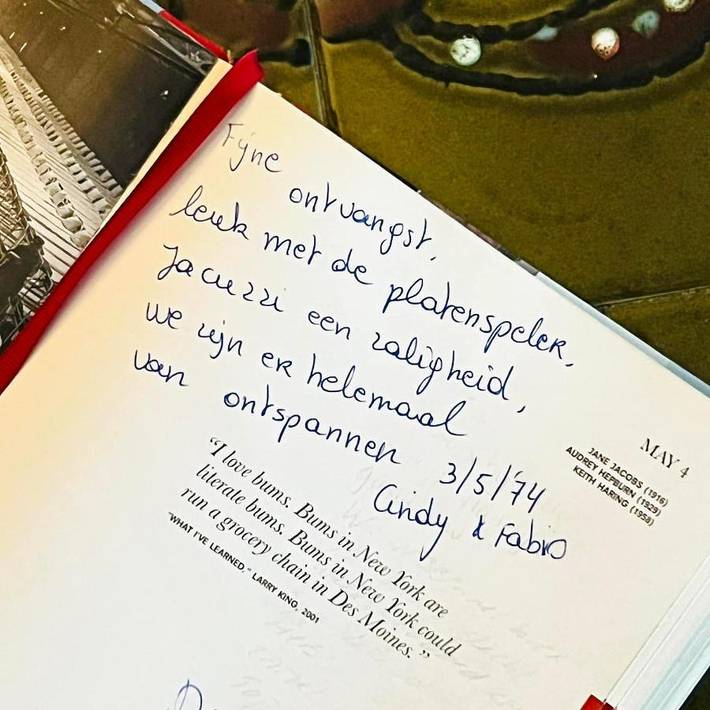 Fijne ontvangst,
leuk met de platenspeler,
Jacuzzi een zaligheid,
we zijn er helemaal
van ontspannen 3/5/'74
Cindy & Fabio
MAY 4
JANE JACOBS (1916)
AUDREY HEPBURN (1929)
KEITH HARING (1958)
“I love bums. Bums in New York are
literate bums. Bums in New York could
run a grocery chain in Des Moines.”
“WHAT I'VE LEARNED,” LARRY KING, 2001